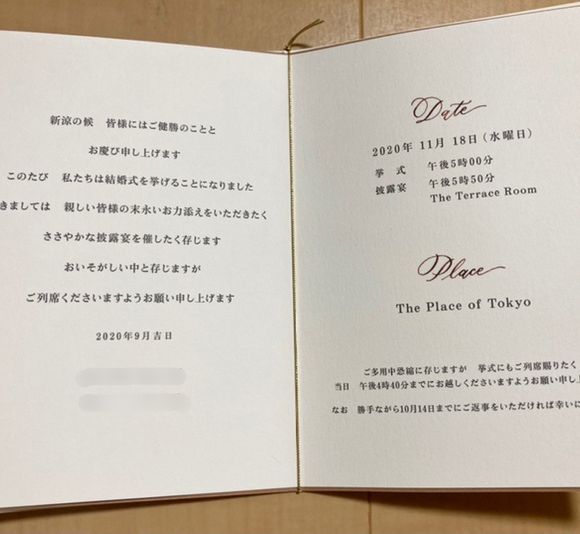 新涼の候　皆様にはご健勝のことと
お慶び申し上げます
このたび　私たちは結婚式を挙げることになりました
きましては　親しい皆様の末永いお力添えをいただきたく
ささやかな披露宴を催したく存じます
おいそがしい中と存じますが
ご列席くださいますようお願い申し上げます
2020年9月吉日
Date
2020年 11月 18日（水曜日）
挙　式　午後5時00分
披露宴　午後5時50分
The Terrace Room
Place
The Place of Tokyo
ご多用中恐縮に存じますが　挙式にもご列席賜りたく
当日　午後4時40分までにお越しくださいますようお願い申し
なお　勝手ながら10月14日までにご返事をいただければ幸いに